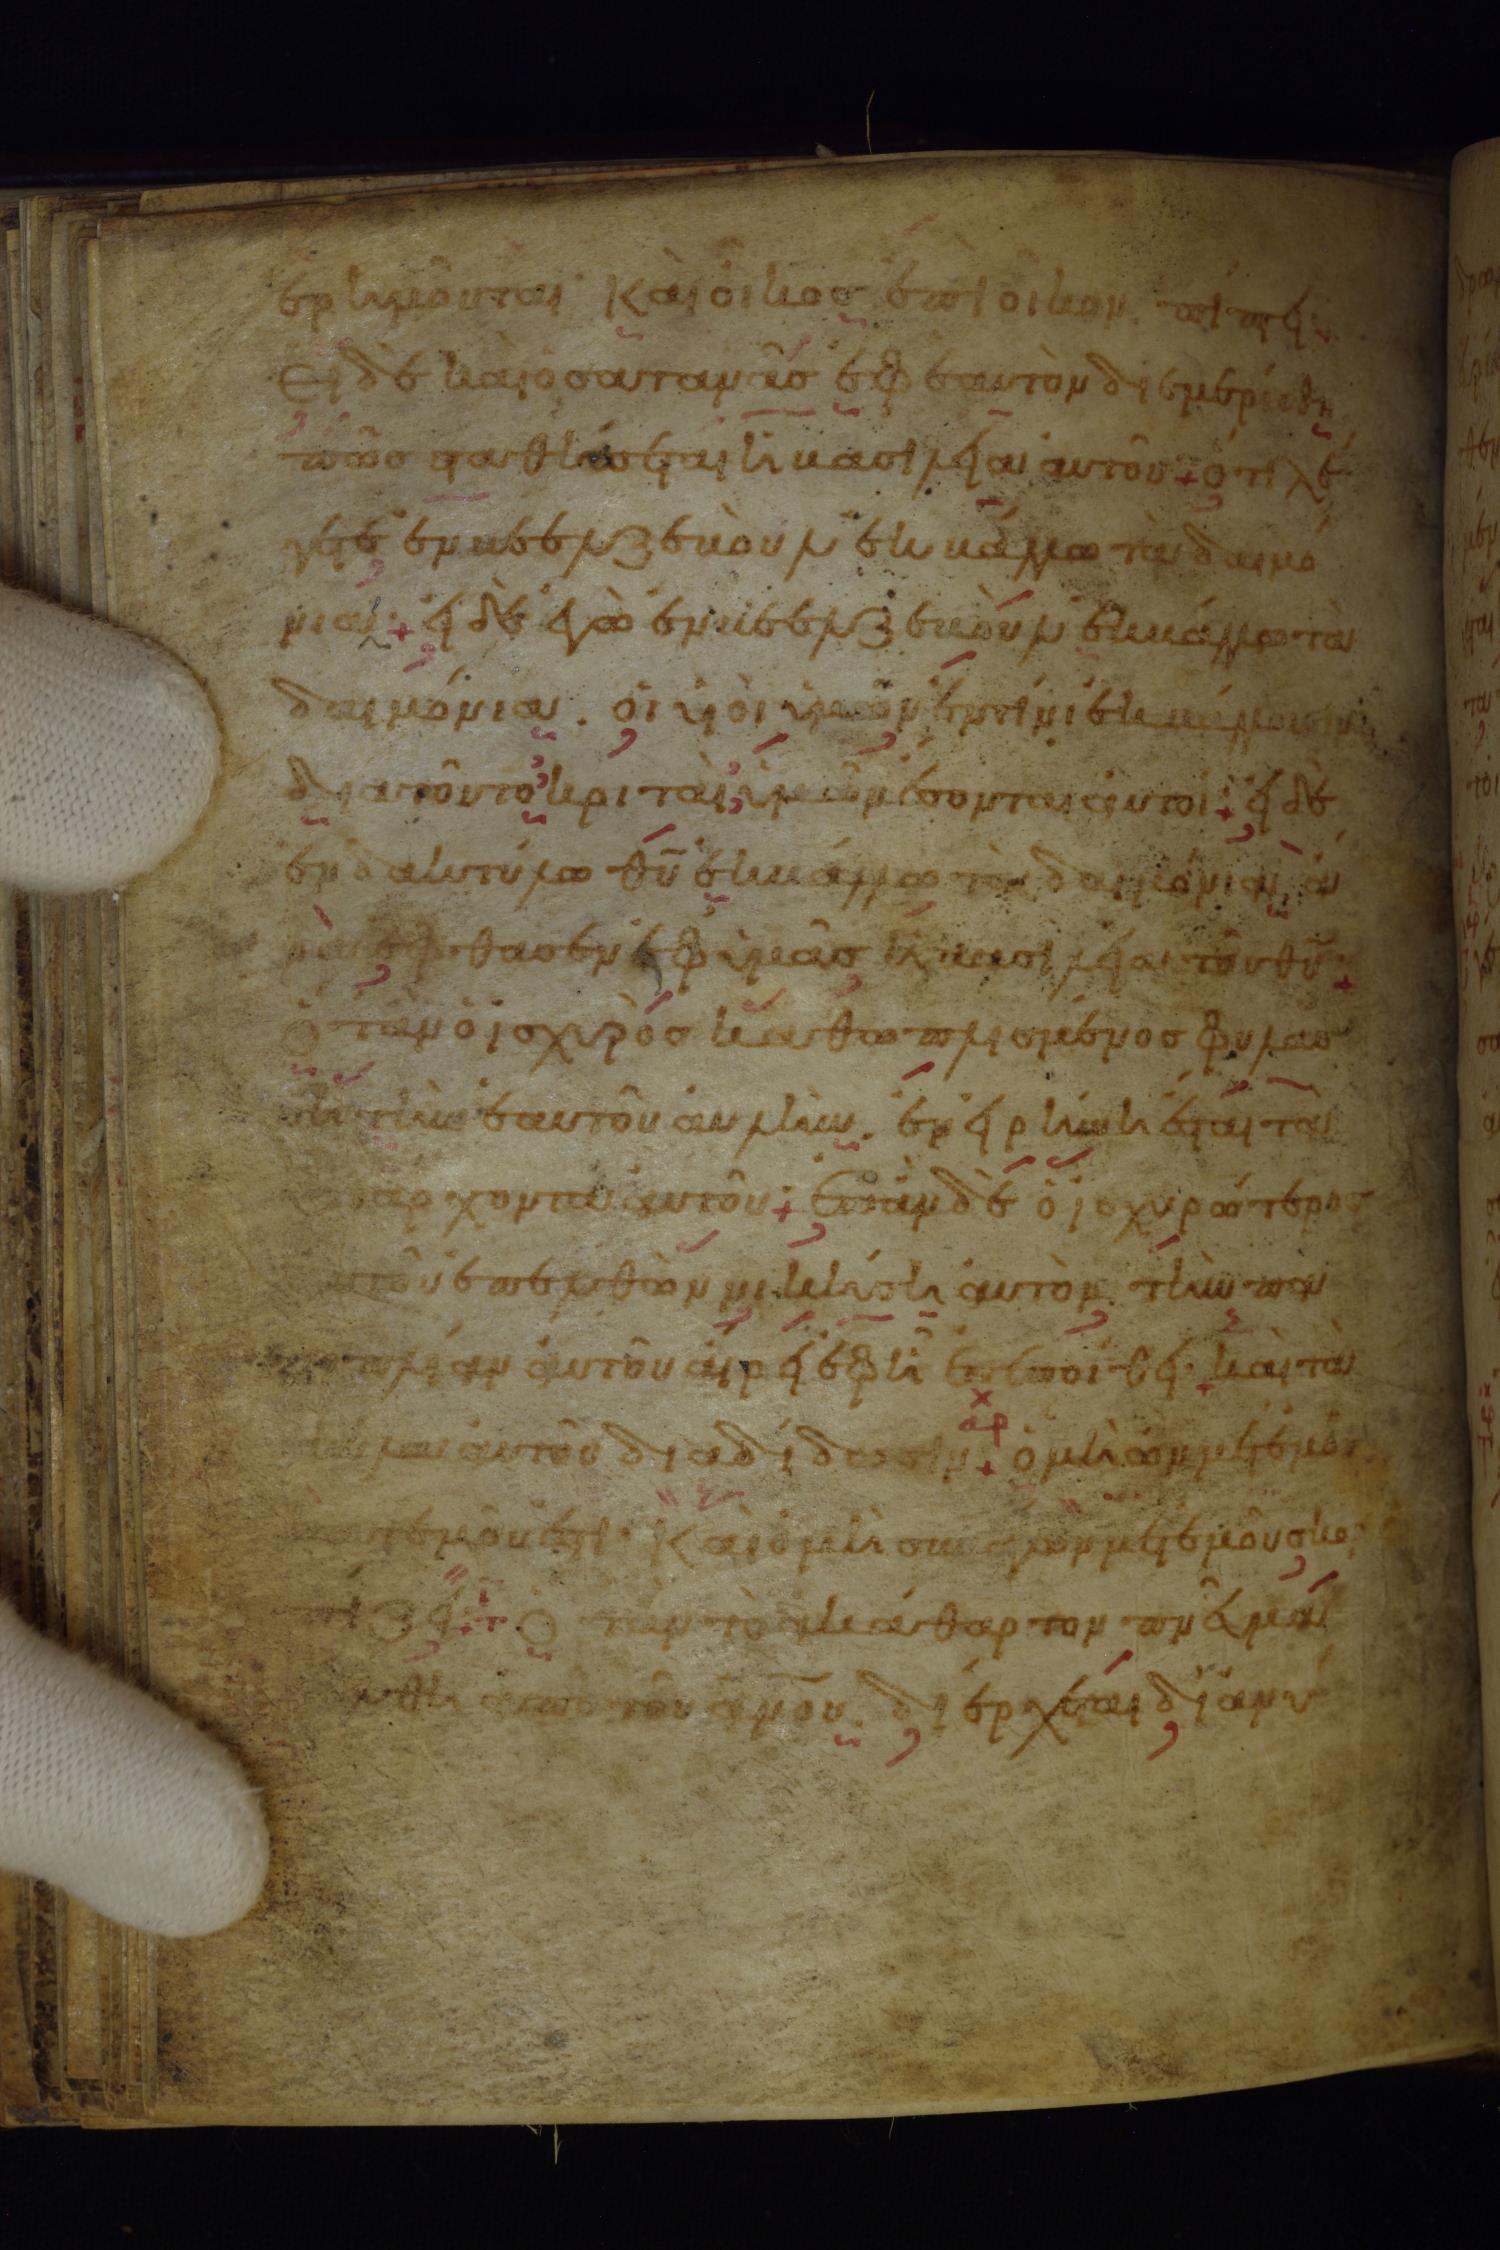 ερημοῦται· Καὶ οἶκος ἐπὶ οἶκον πίπτει·
Εἰ δὲ καὶ ὁ σατανᾶς ἐφ ἑαυτὸν διεμερίσθη
πῶς σταθήσεται ἡ βασιλεία αὐτοῦ + ὅτι λέ
γετε ἐν βεελζεβοὺλ ἐκβάλλω τὰ δαιμό
νια· + εἰ δὲ ἐγὼ ἐν βεελζεβοὺλ ἐκβάλλω τὰ
δαιμόνια. οἱ υἱοὶ ὑμῶν ἐν τίνι ἐκβάλλουσιν
διατοῦτο κριταὶ ὑμῶν ἔσονται αὐτοί· + εἰ δὲ
ἐν δακτύλω θυ ἐκβάλλω τὰ δαιμόνια, ἄ
ρα ἔφθασεν ἐφ ὑμᾶς ἡ βασιλεία τοῦ θυ· +
Ὅταν ὁ ἰσχυρὸς καθωπλισμένος φυλάσ
ση τὴν ἑαυτοῦ αὐλήν. ἐν εἰρήνη ἐστὶ τὰ
ὑπάρχοντα αὐτοῦ· + Ἐπὰν δὲ ὁ ἰσχυρότερος
αὐτοῦ ἐπελθὼν νικήση αὐτὸν, τὴν πα
νοπλίαν αὐτοῦ αἴρει ἐφ ἧ ἐπεποίθει· + καὶ τὰ
σκῦλα αὐτοῦ διαδίδωσιν + ὁ μὴ ὢν μετ ἐμοῦ
κατ ἐμοῦ ἐστι· Καὶ ὁ μὴ συνάγων μετ ἐμοῦ σκορ
πίζει· + Ὅταν τὸ ἀκάθαρτον πνα
ἐξέλθη ἀπὸ τοῦ ανου. διέρχεται δι ἀνύ